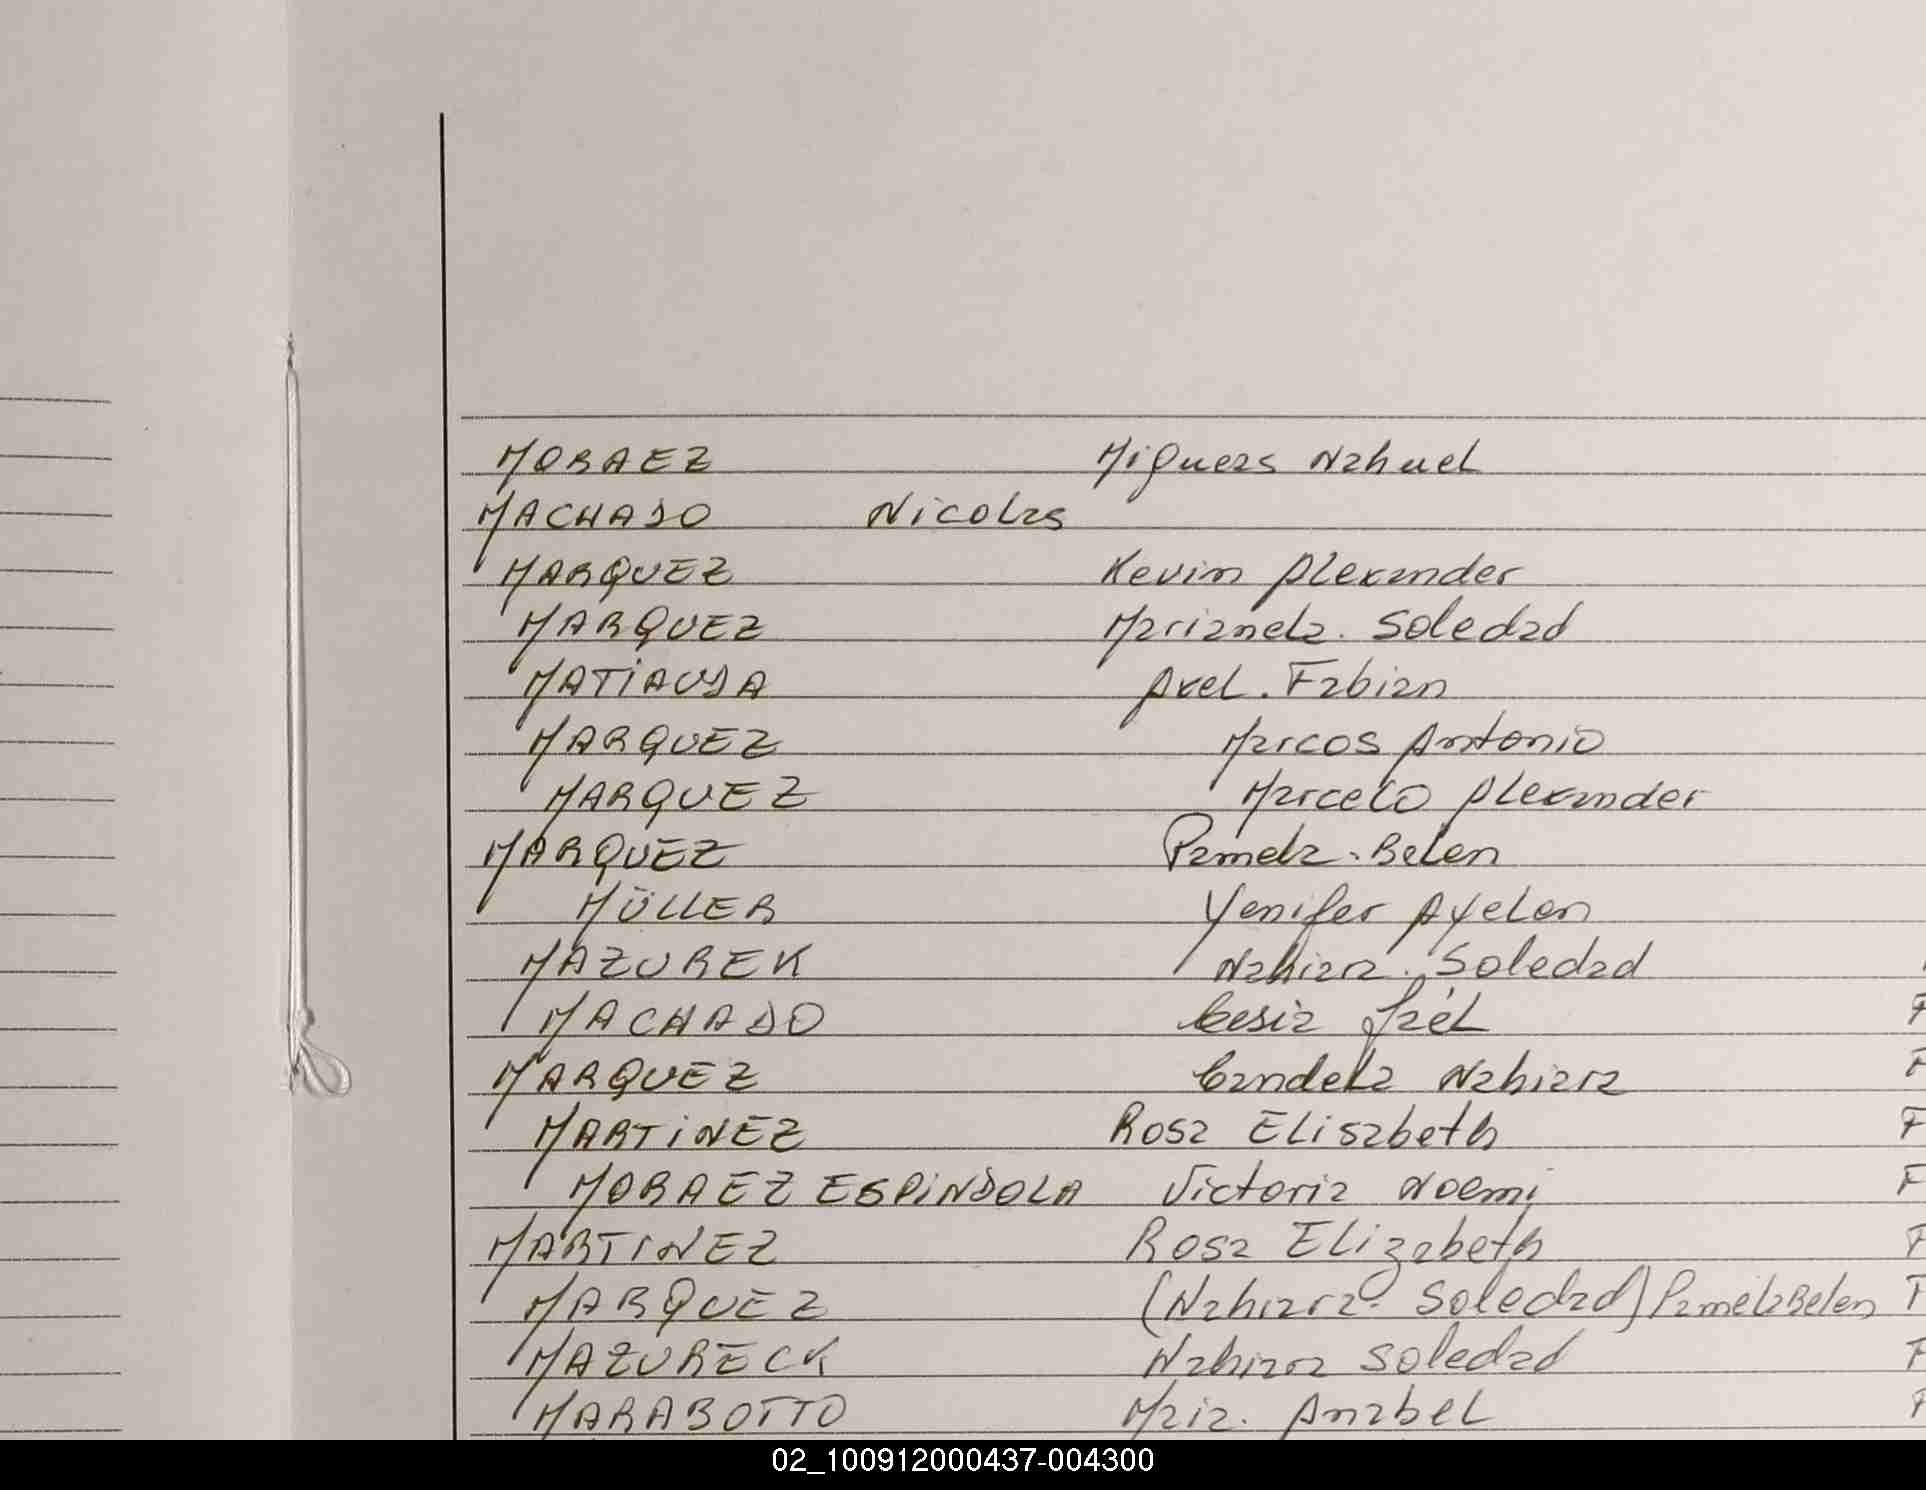 MORAEZ Migueas Nahuel
MACHADO Nicolas
MARQUEZ Kevin Alexander
MARQUEZ Marianela. Soledad
MATIAUDA Axel. Fabian
MARQUEZ Marcos Antonio
MARQUEZ Marcelo Alexander
MARQUEZ Pamela. Belen
MÜLLER Yenifer Ayelen
MAZUREK Nahiara. Soledad
MACHADO Cesia Jaél F
MARQUEZ Candela Nahiara F
MARTiNEZ Rosa Elisabeth F
MORAEZ ESPiNDOLA Victoria Noemi F
MARTINEZ Rosa Elizabeth F
MARQUEZ (Nahiara. Soledad) Pamela Belen F
MAZURECK Nahiara Soledad F
MARABOTTO Anabel F
02_100912000437-004300